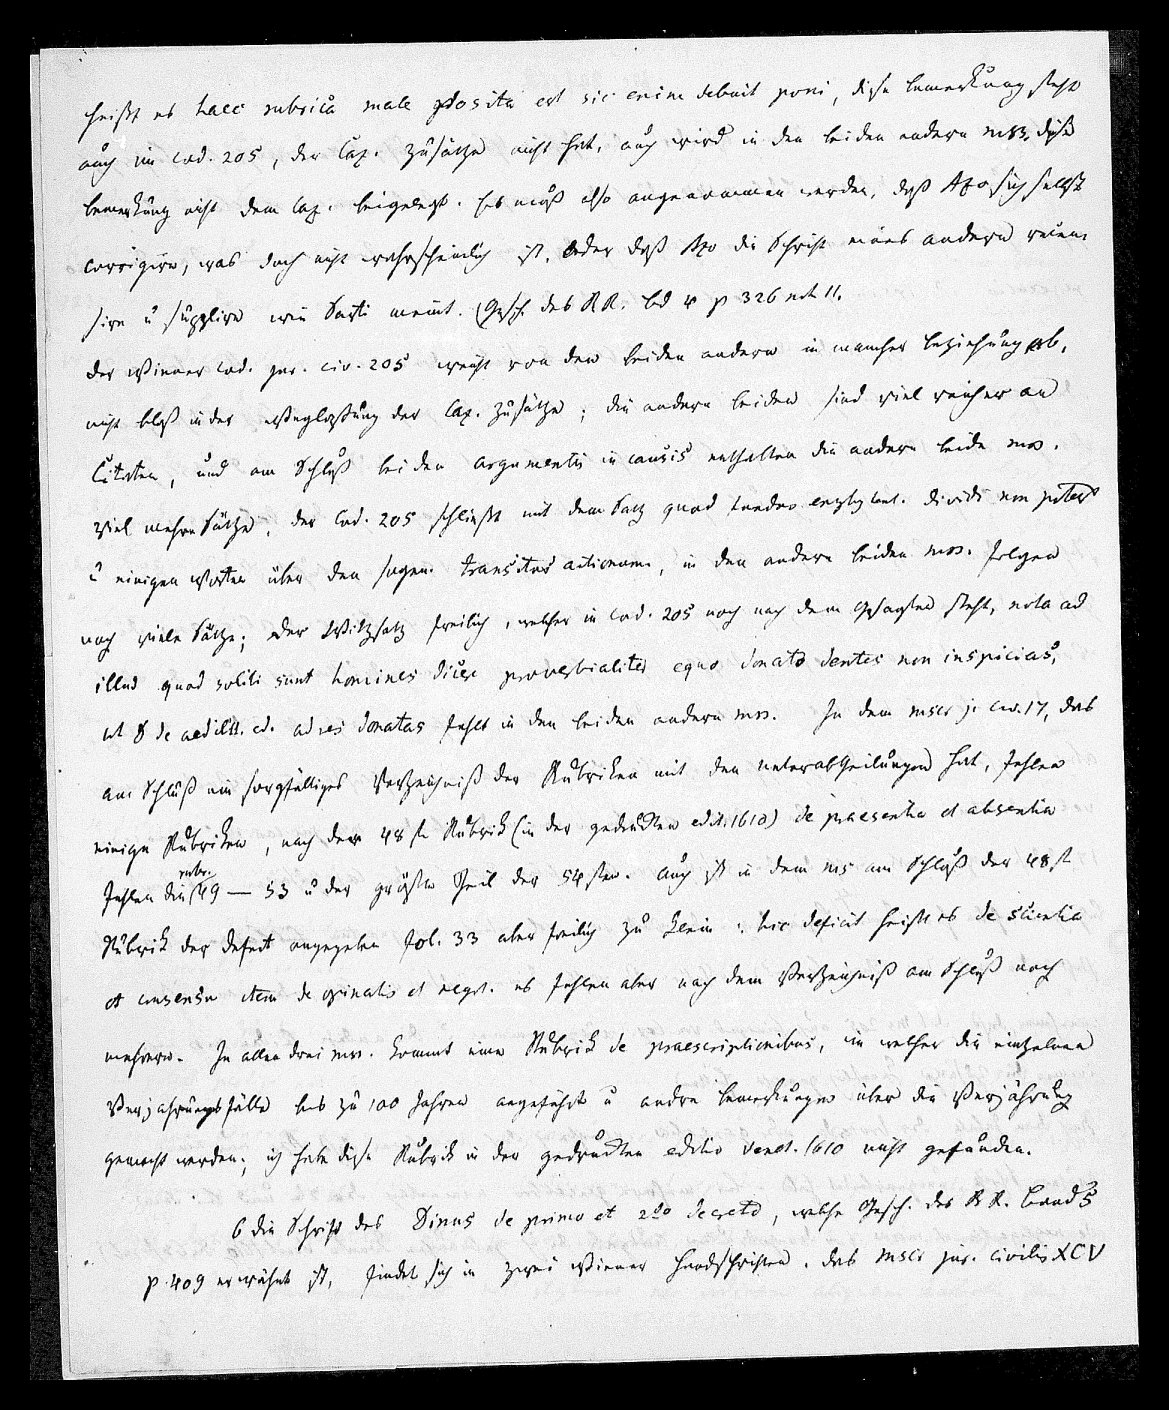 heißt es haec rubrica male posita est sic enim debuit poni, diese bemerkung steht
auch im Cod. 205, der Cap. Zusätze nicht hat, auch wird in den beiden andern mss. diese
bemerkung nicht dem Cap. beigelegt. Es muß also angenommen werden, daß Azo sich selbst
corrigire, was doch nicht wahrscheinlich ist, oder daß Azo die Schrift eines andern recen-
sire u supplire wie Sarti meint. (Gesch. des RR. bd v p 326 not 11.
der Wiener Cod. jur. civ. 205 weicht von den beiden andern in mancher beziehung ab,
nicht blos in der Weglaßung der Cap. Zusätze; die andern beiden sind viel reicher an
Citaten, und am Schluß bei den argumentis in causis enthalten die andern beide mss.
viel mehre Sätze. der Cod. 205 schließt mit dem Satz quod dividi non potest
u einigen Worten über den sogen. transitus actionum, in den andern beiden mss. folgen
noch viele Sätze; der Witzsatz freilich, welcher in Cod. 205 noch nach dem gesagten steht, nota ad
illud quod soliti sunt homines dicere proverbialiter equo donato dentes non inspicias,
ut D de aedilit. ed. ad res donatas fehlt in den beiden andern mss. In dem mscr j. civ. 17, das
am Schluß ein sorgfältiges Verzeichniß der Rubriken mit den unterabtheilungen hat, fehlen
einige Rubriken, nach der 48 st Rubrik (in der gedruckten edit. 1610) de praesentia et absentia
fehlen die rubr. 49 — 53 u der größte Theil der 54 sten. Auch ist in dem ms am Schluß der 48 st
Rubrik der defect angegeben fol. 33 aber freilich zu klein: hic deficit heißt es de scientia
et consensu item de et negot. es fehlen aber nach dem Verzeichniß am Schluß noch
mehrere. In allen drei mss. kommt eine Rubrik de praescriptionibus, in welcher die einzelnen
Verjahrungsfälle bis zu 100 Jahren angeführt u andre bemerkungen über die Verjährung
gemacht werden; ich habe diese Rubrik in der gedruckten editio Venet. 1610 nicht gefunden.
6 die Schrift des Dinus de primo et 2do decreto, welche Gesch. des RR. band 5
p. 409 erwähnt ist, findet sich in zwei Wiener Handschriften. das mscr jur. civilis XCV